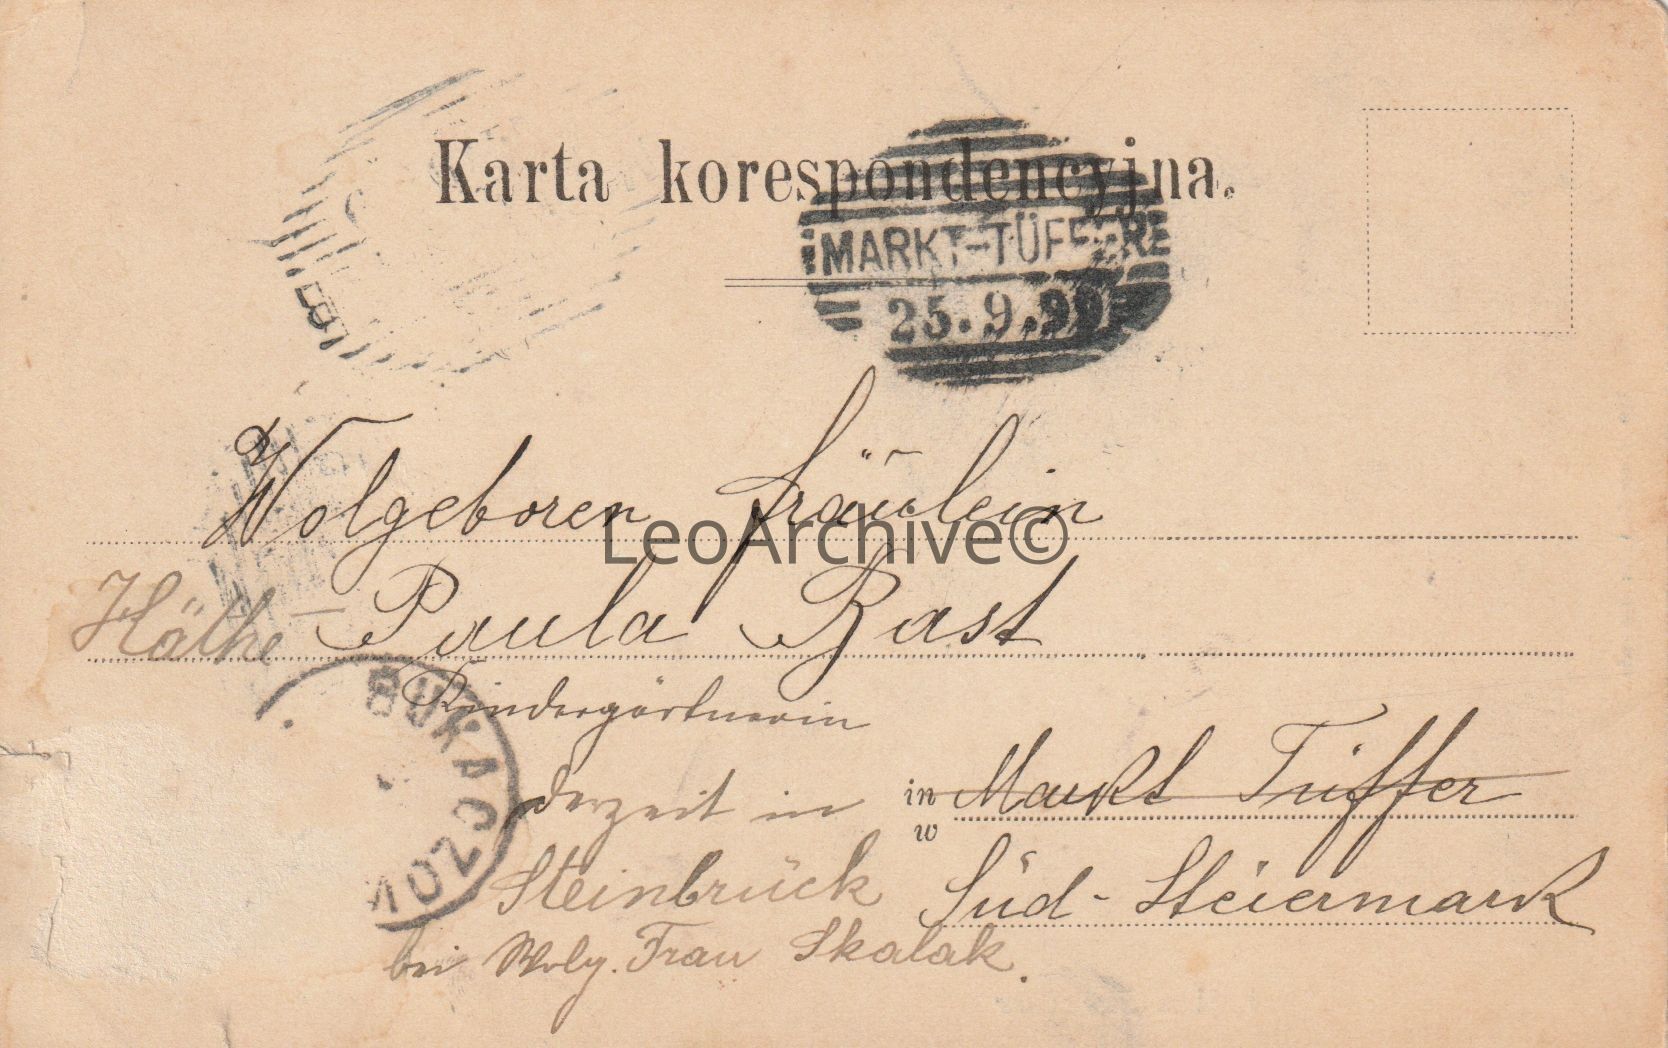 Karta korespondencyjna.
MARKT-TÜFFER
25.9.99
Wolgeboren Fräulein
LeoArchive©
Käthe - Paula Bast
Kindergärtnerin
BUKACZO
derzeit in
in Markt Tüffer
w
Steinbrück
Süd-Steiermark
bei Wolg. Frau Skalak.